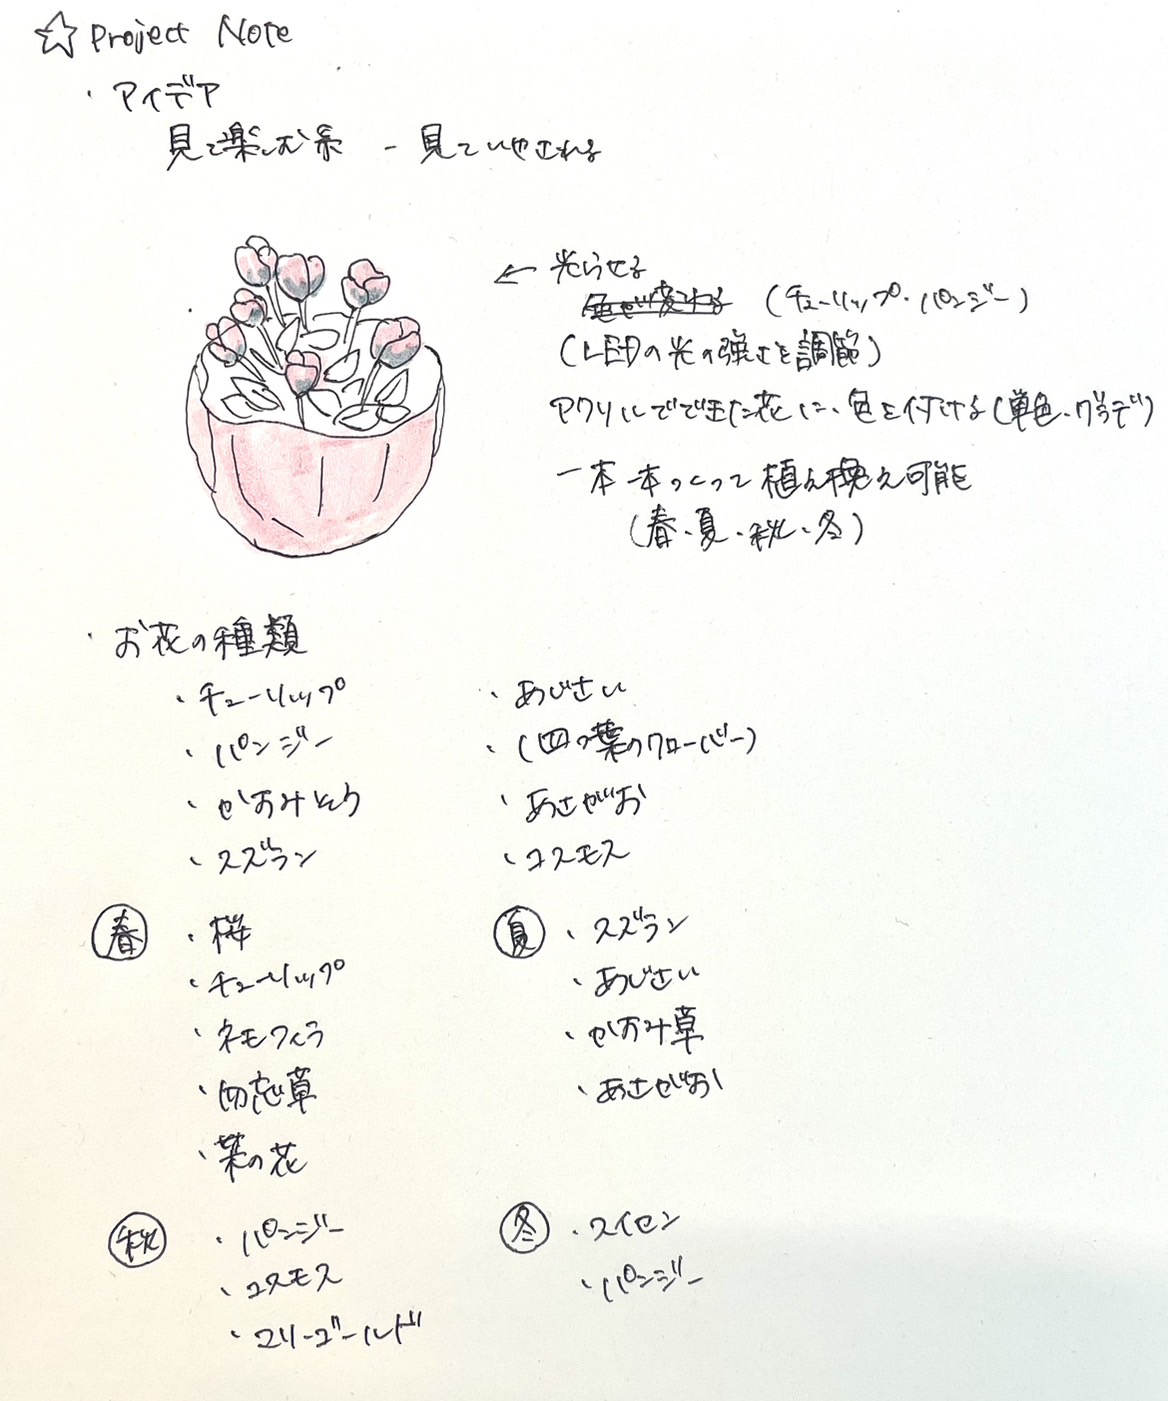 ☆ Project Note
・アイデア
見て楽しむ系 - 見ていやされる
← 光らせる
色が変わる (チューリップ・パンジー)
(LEDの光の強さを調節)
アクリルでできた花に、色を付ける(単色・グラデ)
一本一本つくって植え換え可能
(春・夏・秋・冬)
・お花の種類
・チューリップ
・パンジー
・かすみそう
・スズラン
・あじさい
・(四つ葉のクローバー)
・あさがお
・コスモス
春 ・桜
・チューリップ
・ネモフィラ
・勿忘草
・菜の花
夏 ・スズラン
・あじさい
・かすみ草
・あさがお
秋 ・パンジー
・コスモス
・マリーゴールド
冬 ・スイセン
・パンジー